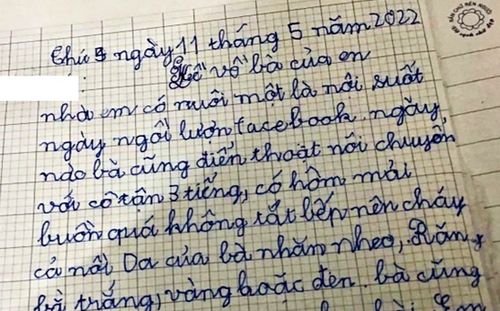 Thứ 5 ngày 11 tháng 5 năm 2022
Kể về bà của em
nhà em có nuôi một là nội suốt
ngày ngồi lướn facebook. ngày
nào bà cũng điển thoặt nói chuyện
với cô tận 3 tiếng, có hôm mải
buồn quá không tắt bếp nên cháy
cả nồi Da của bà nhăn nheo, Răn
bà trắng, vàng hoặc đen. bà cũng
Em